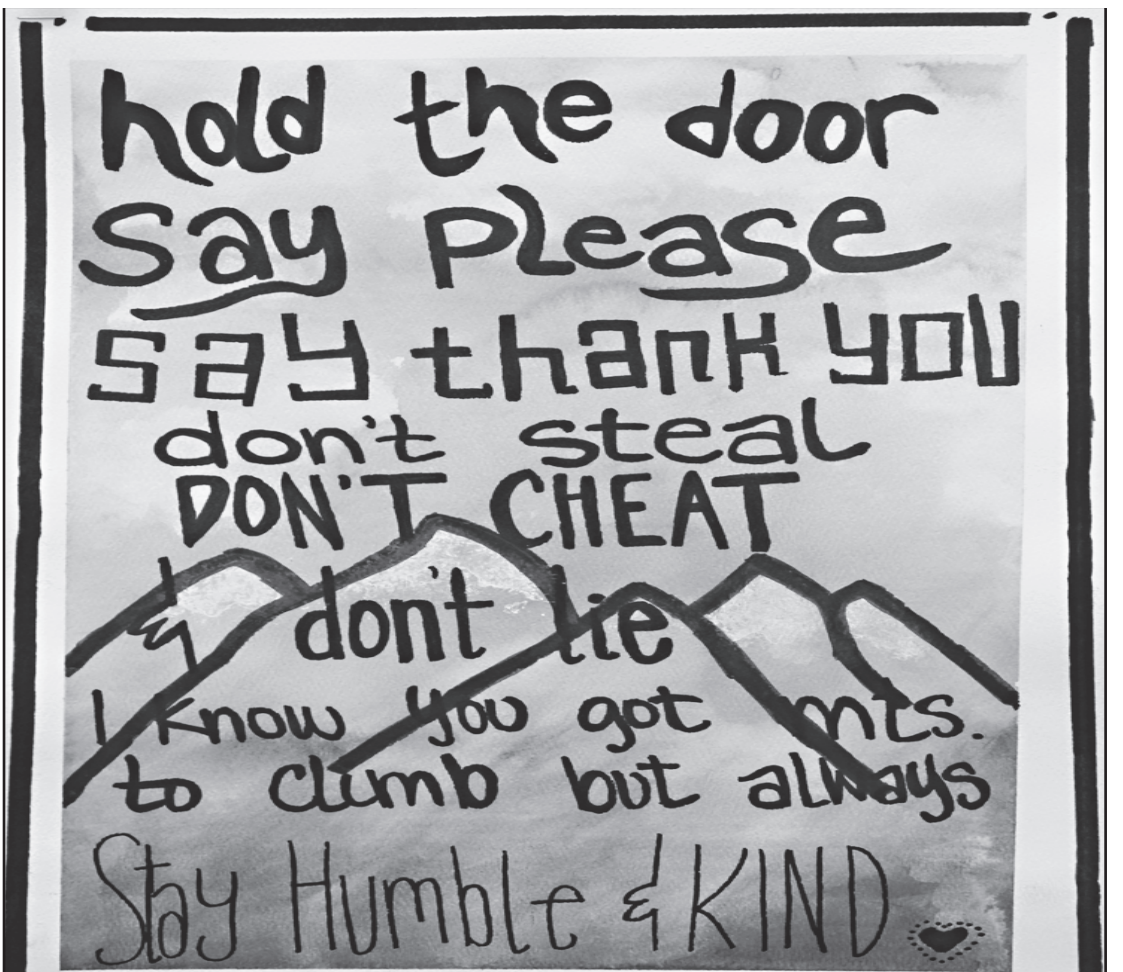 hold the door
say please
say thank you
don't steal
DON'T CHEAT
& don't lie
I know you got mts.
to climb but always
Stay Humble & KIND